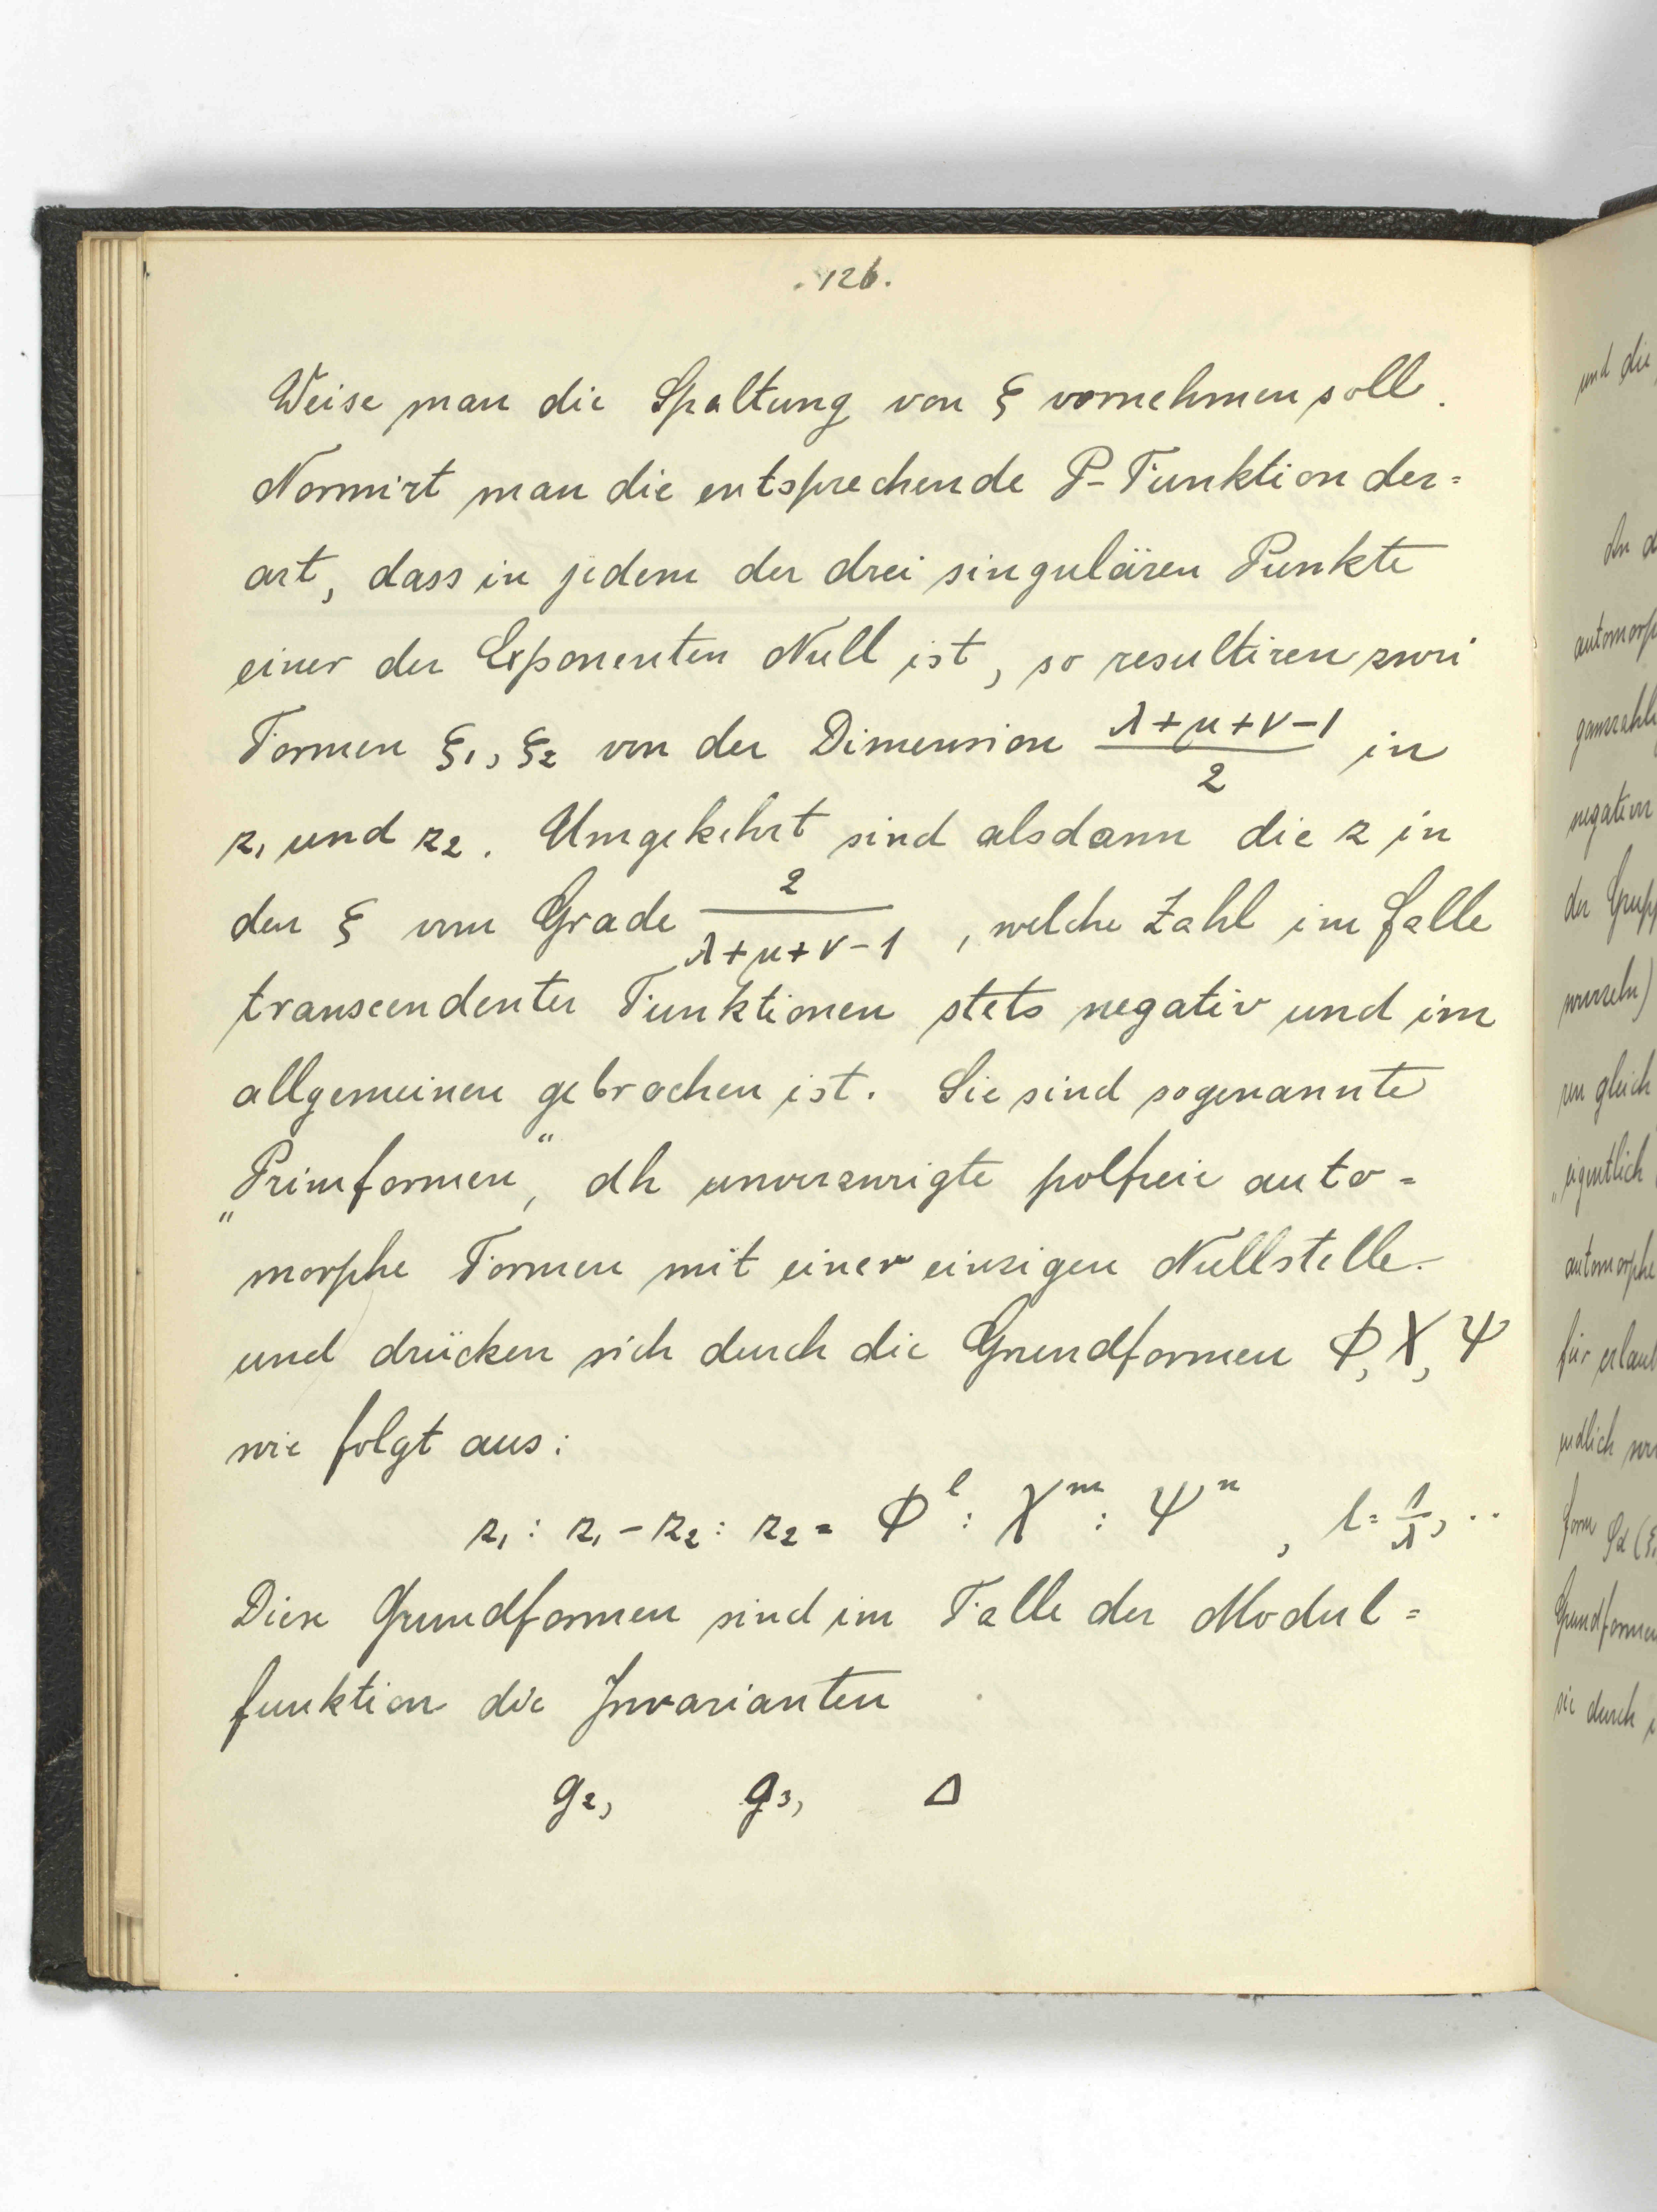 . 126.
Weise man die Spaltung von ξ vornehmen soll.
Normirt man die entsprechende P-Funktion der=
art, dass in jedem der drei singulären Punkte
einer der Exponenten Null ist, so resultiren zwei
Formen ξ₁, ξ₂ von der Dimension (λ+μ+ν-1)/2 in
z₁ und z₂. Umgekehrt sind alsdann die z in
den ξ vom Grade 2/(λ+μ+ν-1), welche Zahl im Falle
transcendenter Funktionen stets negativ und im
allgemeinen gebrochen ist. Sie sind sogenannte
„Primformen“, dh unverzweigte polfreie auto=
morphe Formen mit einer einzigen Nullstelle
und drücken sich durch die Grundformen Φ, Χ, Ψ
wie folgt aus:
z₁ : z₁ - z₂ : z₂ = Φˡ : Χᵐ : Ψⁿ , l = 1/λ, ..
Diese Grundformen sind im Falle der Modul=
funktion die Invarianten
g₂, g₃, Δ
und die
automorph
negativ
der Grupp
wurzeln)
ren gleich
„eigentlich
automorphe
für erlaub
endlich
form
Grundformen
sie durch